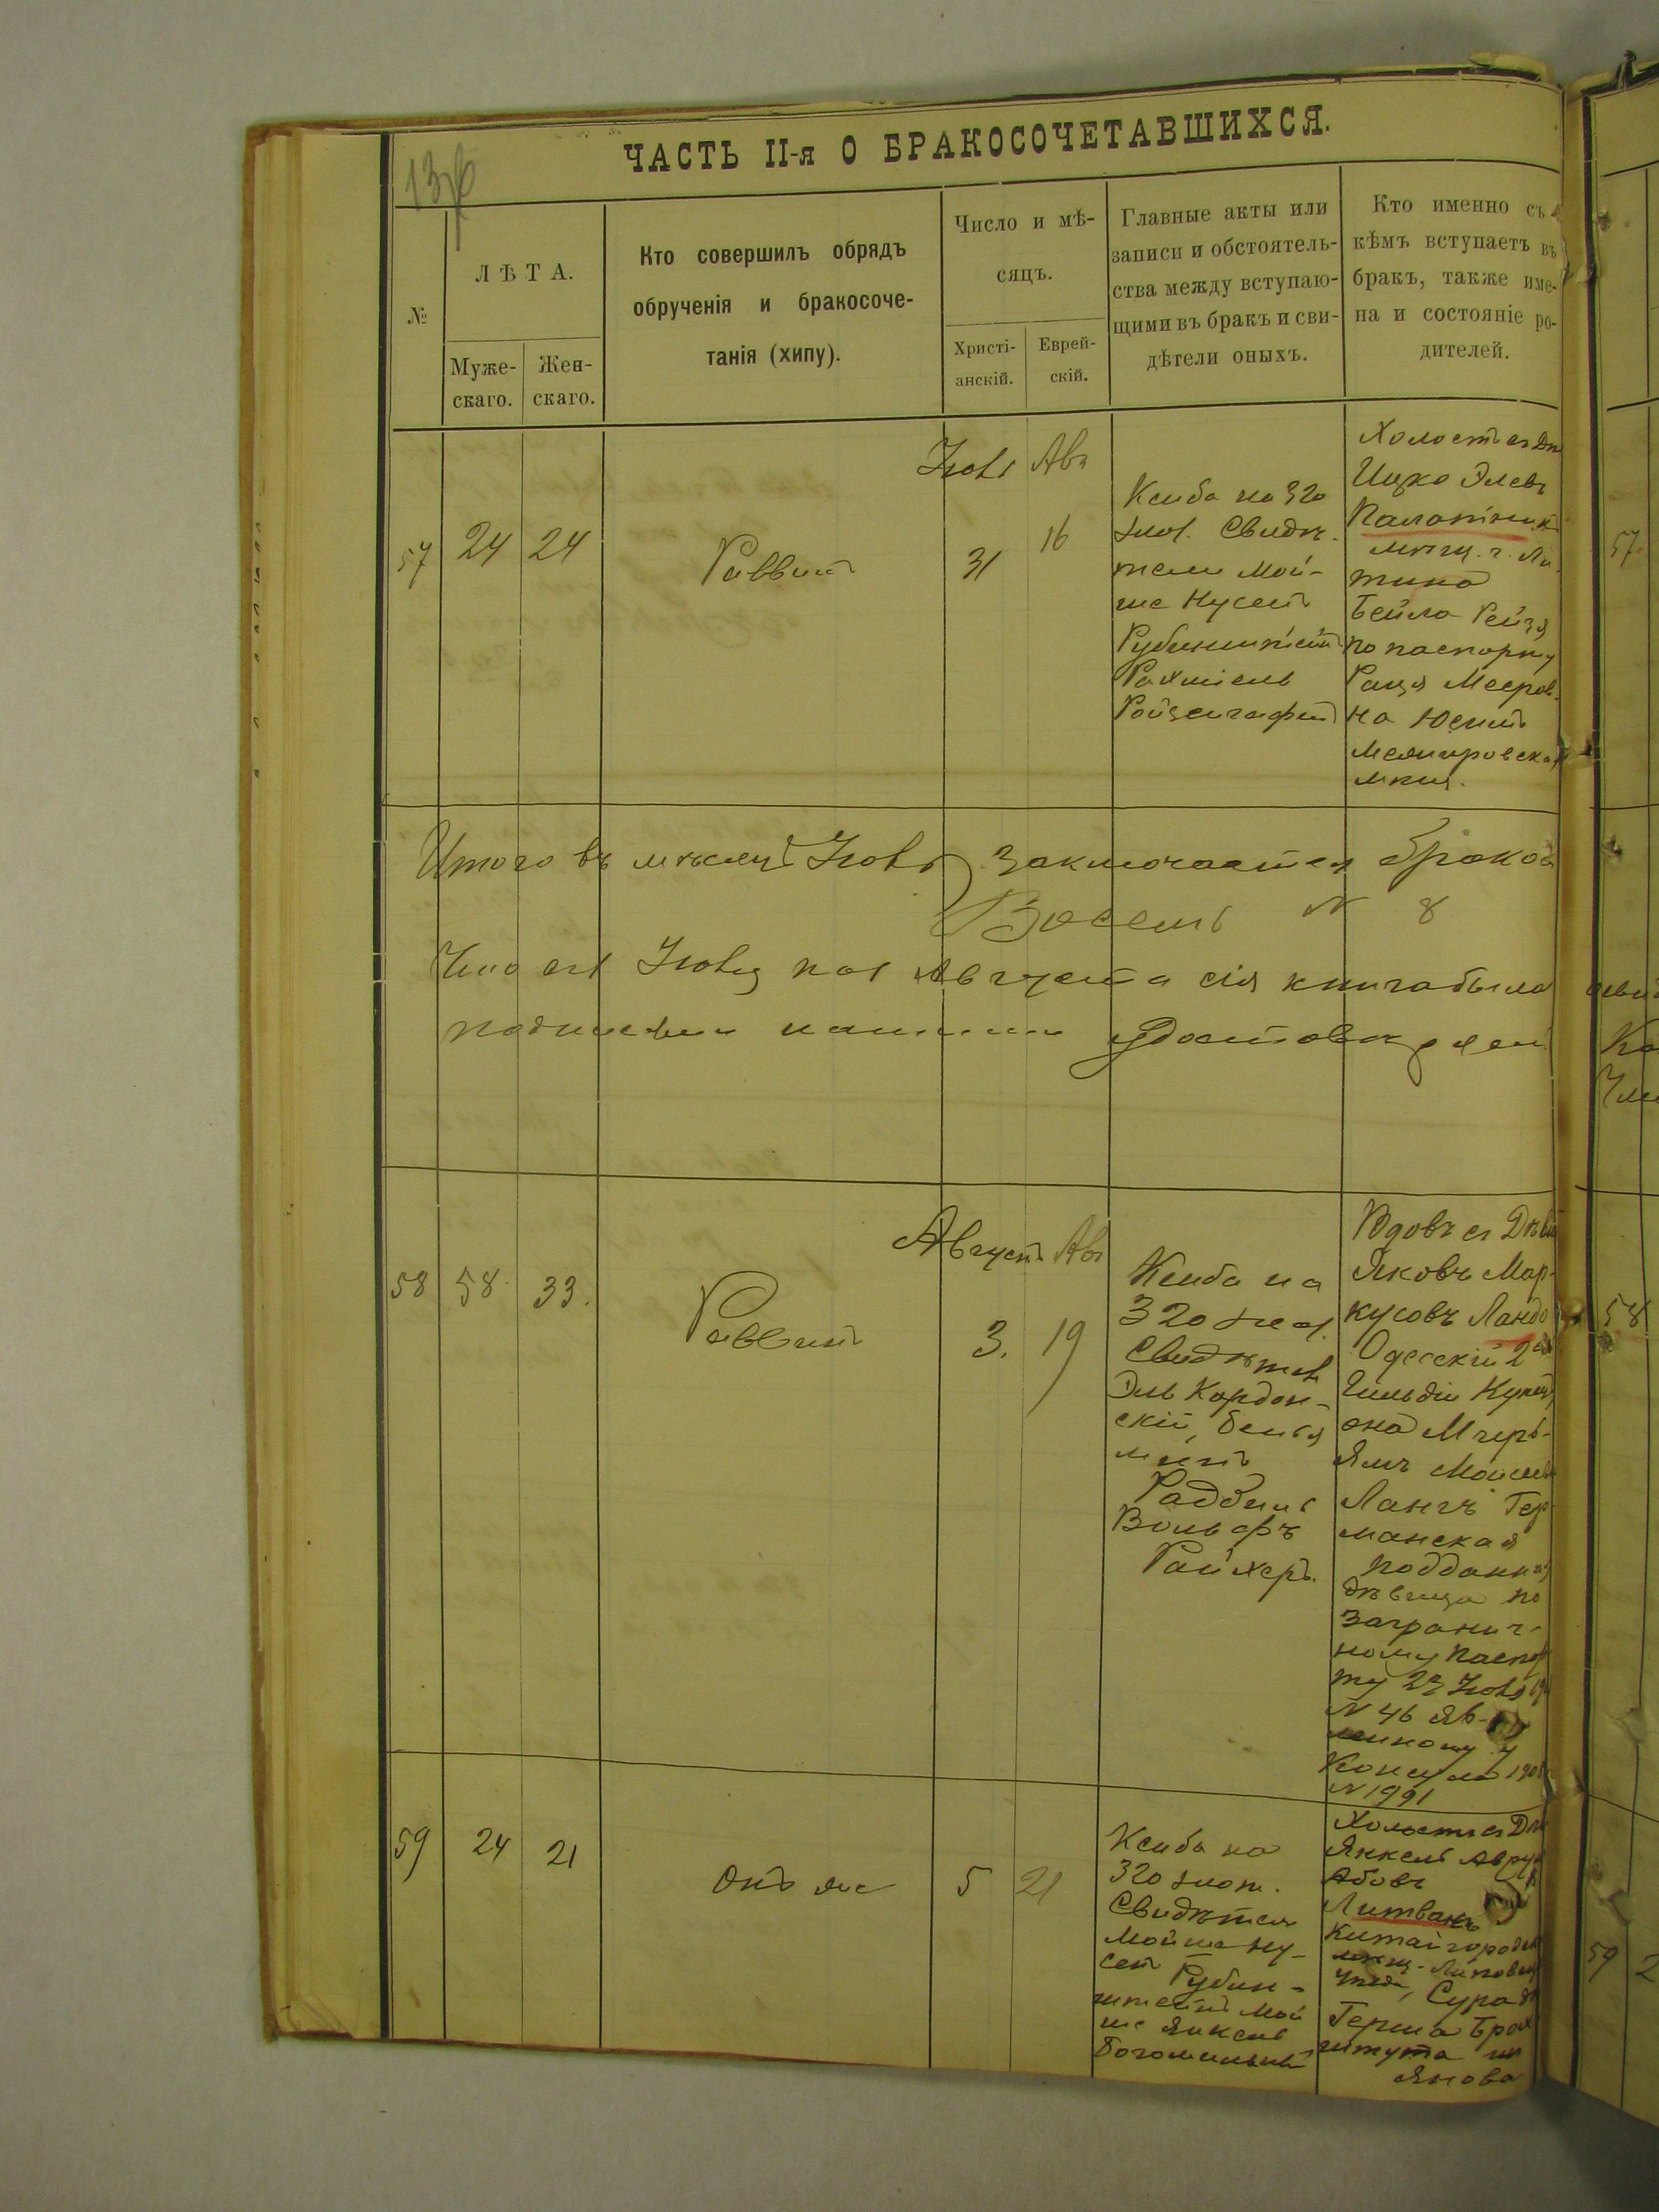 ЧАСТЬ II-я О БРАКОСОЧЕТАВШИХСЯ.
№
ЛѢТА.
Муже-
скаго.
Жен-
скаго.
Кто совершилъ обрядъ
обрученія и бракосоче-
танія (хипу).
Число и мѣ-
сяцъ.
Христі-
анскій.
Еврей-
скій.
Главные акты или
записи и обстоятель-
ства между вступаю-
щими въ бракъ и сви-
дѣтели оныхъ.
Кто именно съ
кѣмъ вступаетъ въ
бракъ, также име-
на и состояніе ро-
дителей.
57
24
24
Раввинъ
Іюль
31
Авъ
16
Ксиба на 320
злот. Свидѣ-
тели Мой-
ше Нусенъ
Рубинштейн
Рахмiель
Холостъ съ
Ицко Элевъ
Палатник
мѣщ. г. Ли-
тина
Бейла Рейзя
по паспорту
Рация Мееров-
на
Итого въ мѣсяцѣ Іюль заключается браков
Восемь N 8
Что съ 1 Іюля по 1 Августа сія книга была
подписями нашими удостовѣряем
58
58
33.
Раввинъ
Августъ
3.
Авъ
19
Ксиба на
320 злот.
Свидѣтел
Эль Кордон-
скій, Бенья
минъ
Вольфъ
Райхеръ
Вдовъ съ Дѣви
Яковъ Мар-
кусовъ Ландо
Одесскій 2ой
Гильдіи Купец
она Миръ-
Ямъ
Лангъ Гер-
манская
подданная
дѣвица по
заграни-
ному паспор
ту 27 Іюля
N 46 яв-
ленному у
Консула 190
N 1991
59
24
21
Онъ же
5
21
Ксиба на
320 злот.
Свидѣтели
Мойше Ну-
сен Рубин-
штейнъ Мой
ше Янкель
Богомильный
Холостъ съ
Янкель Авру
Абовъ
Литвакъ
Китайгород
Липовец
уѣзда, Сура
Герша
Янова
57
58
59
2